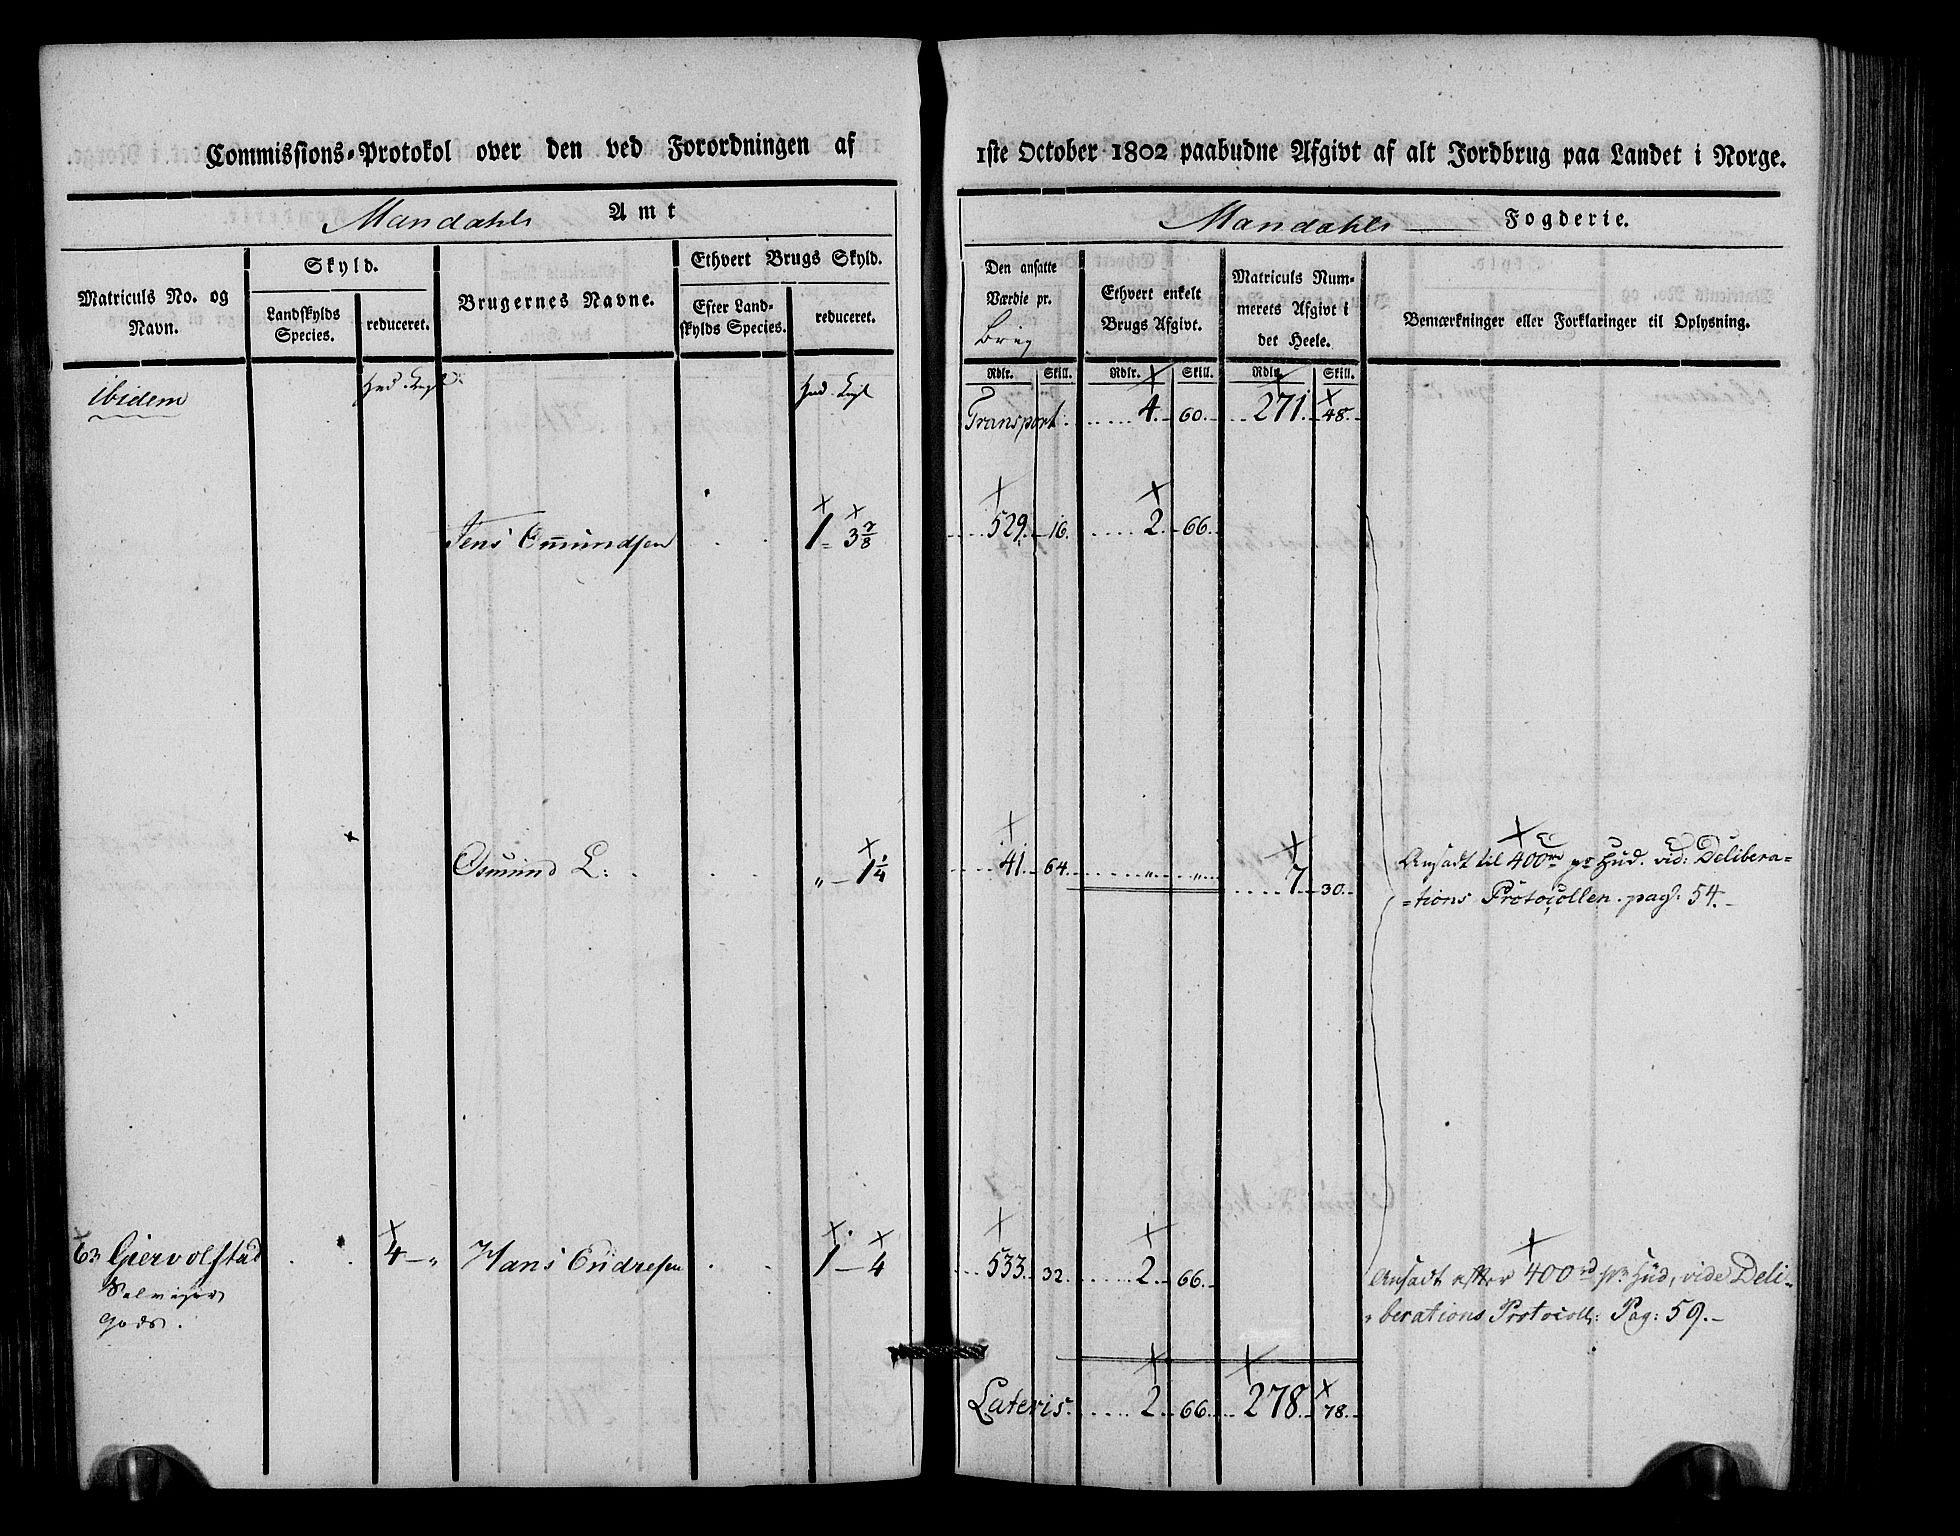 Commissions-Protokol over den ved Forordningen af 1ste October 1802 paabudne Afgivt af alt Jordbrug paa Landet i Norge.
Mandahls Amt
Mandahls Fogderie.
Matriculs No. og Navn.
Skyld.
Landskylds Species.
reduceret.
Brugernes Navne.
Ethvert Brugs Skyld.
Efter Landskylds Species.
reduceret.
Den ansatte Værdie pr. Brug
Ethvert enkelt Brugs Afgivt.
Matriculs Nummerets Afgivt i det Heele.
Bemærkninger eller Forklaringer til Oplysning.
Rdlr. Skill. Rdlr. Skill. Rdlr. Skill.
ibidem
Transport 4. 60. 271. 48.
Jens Omundsen 1 - 3 7/8 529. 16. 2. 66.
Osmund L: „ - 1 1/4 41. 64. „ „ 7. 30. Ansadt til 400rd pr Hud. vid: Delibera=
=tions Protocollen. pag. 54.-
63 Giervolstad 4 - „ Hans Endresen 1 - 4 533. 32. 2. 66. Ansadt efter 400rd pr Hud, vide Deli=
gods. berations Protocoll: Pag: 59.-
Lateris. 2. 66. 278. 78.